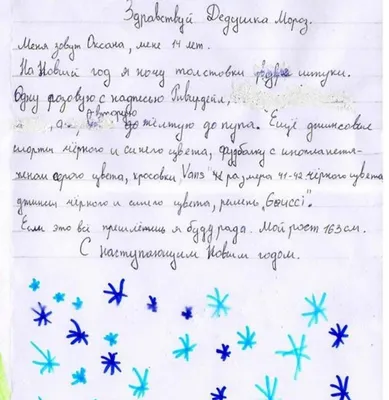 Здравствуй Дедушка Мороз.
Меня зовут Оксана, мне 14 лет.
На Новый год я хочу толстовки две штуки.
Одну розовую с надписью Ривердейл,
а вторую
до жёлтую до пупа. Ещё джинсовые
шорты чёрного и синего цвета, футболку с инопланетя-
нином серого цвета, кросовки Vans размера 41-42 чёрного цвета
джинсы чёрного и синего цвета, ремень „Gouccі".
Если это всё пришлёшь я буду рада. Мой рост 163 см.
С наступающим Новым годом.